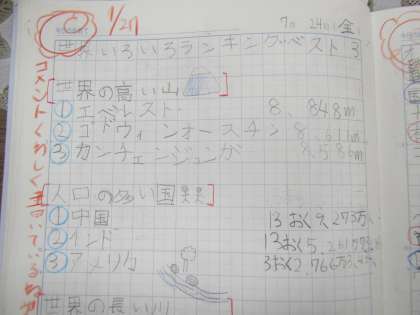 C 1/27
7月24日(金)
世界いろいろランキングベスト3
世界の高い山
① エベレスト 8,848m
② ゴドウィンオースチン 8,611m
③ カンチェンジュンガ 8,586m
人口の多い国
① 中国 13おく9,275万
② インド 13おく5,261万
③ アメリカ 3おく2,766万
世界の長い川
コメントくわしく書いている